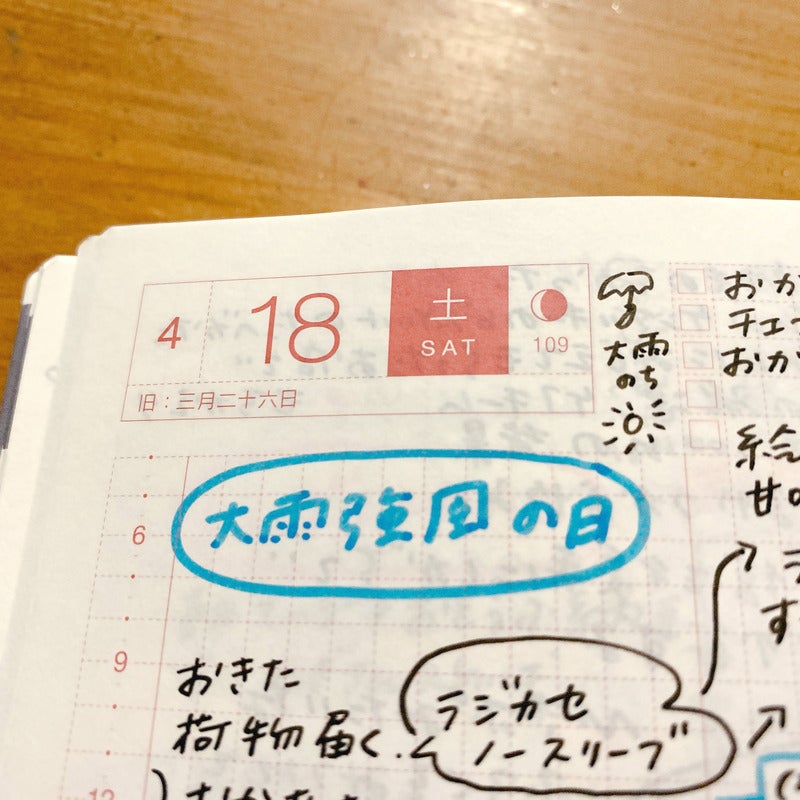 4
18
土
SAT
109
旧：三月二十六日
大雨
のち
おか
チェ
おか
大雨強風の日
6
絵
甘の
す
9
おきた
荷物届く
ラジカセ
ノースリーブ
12